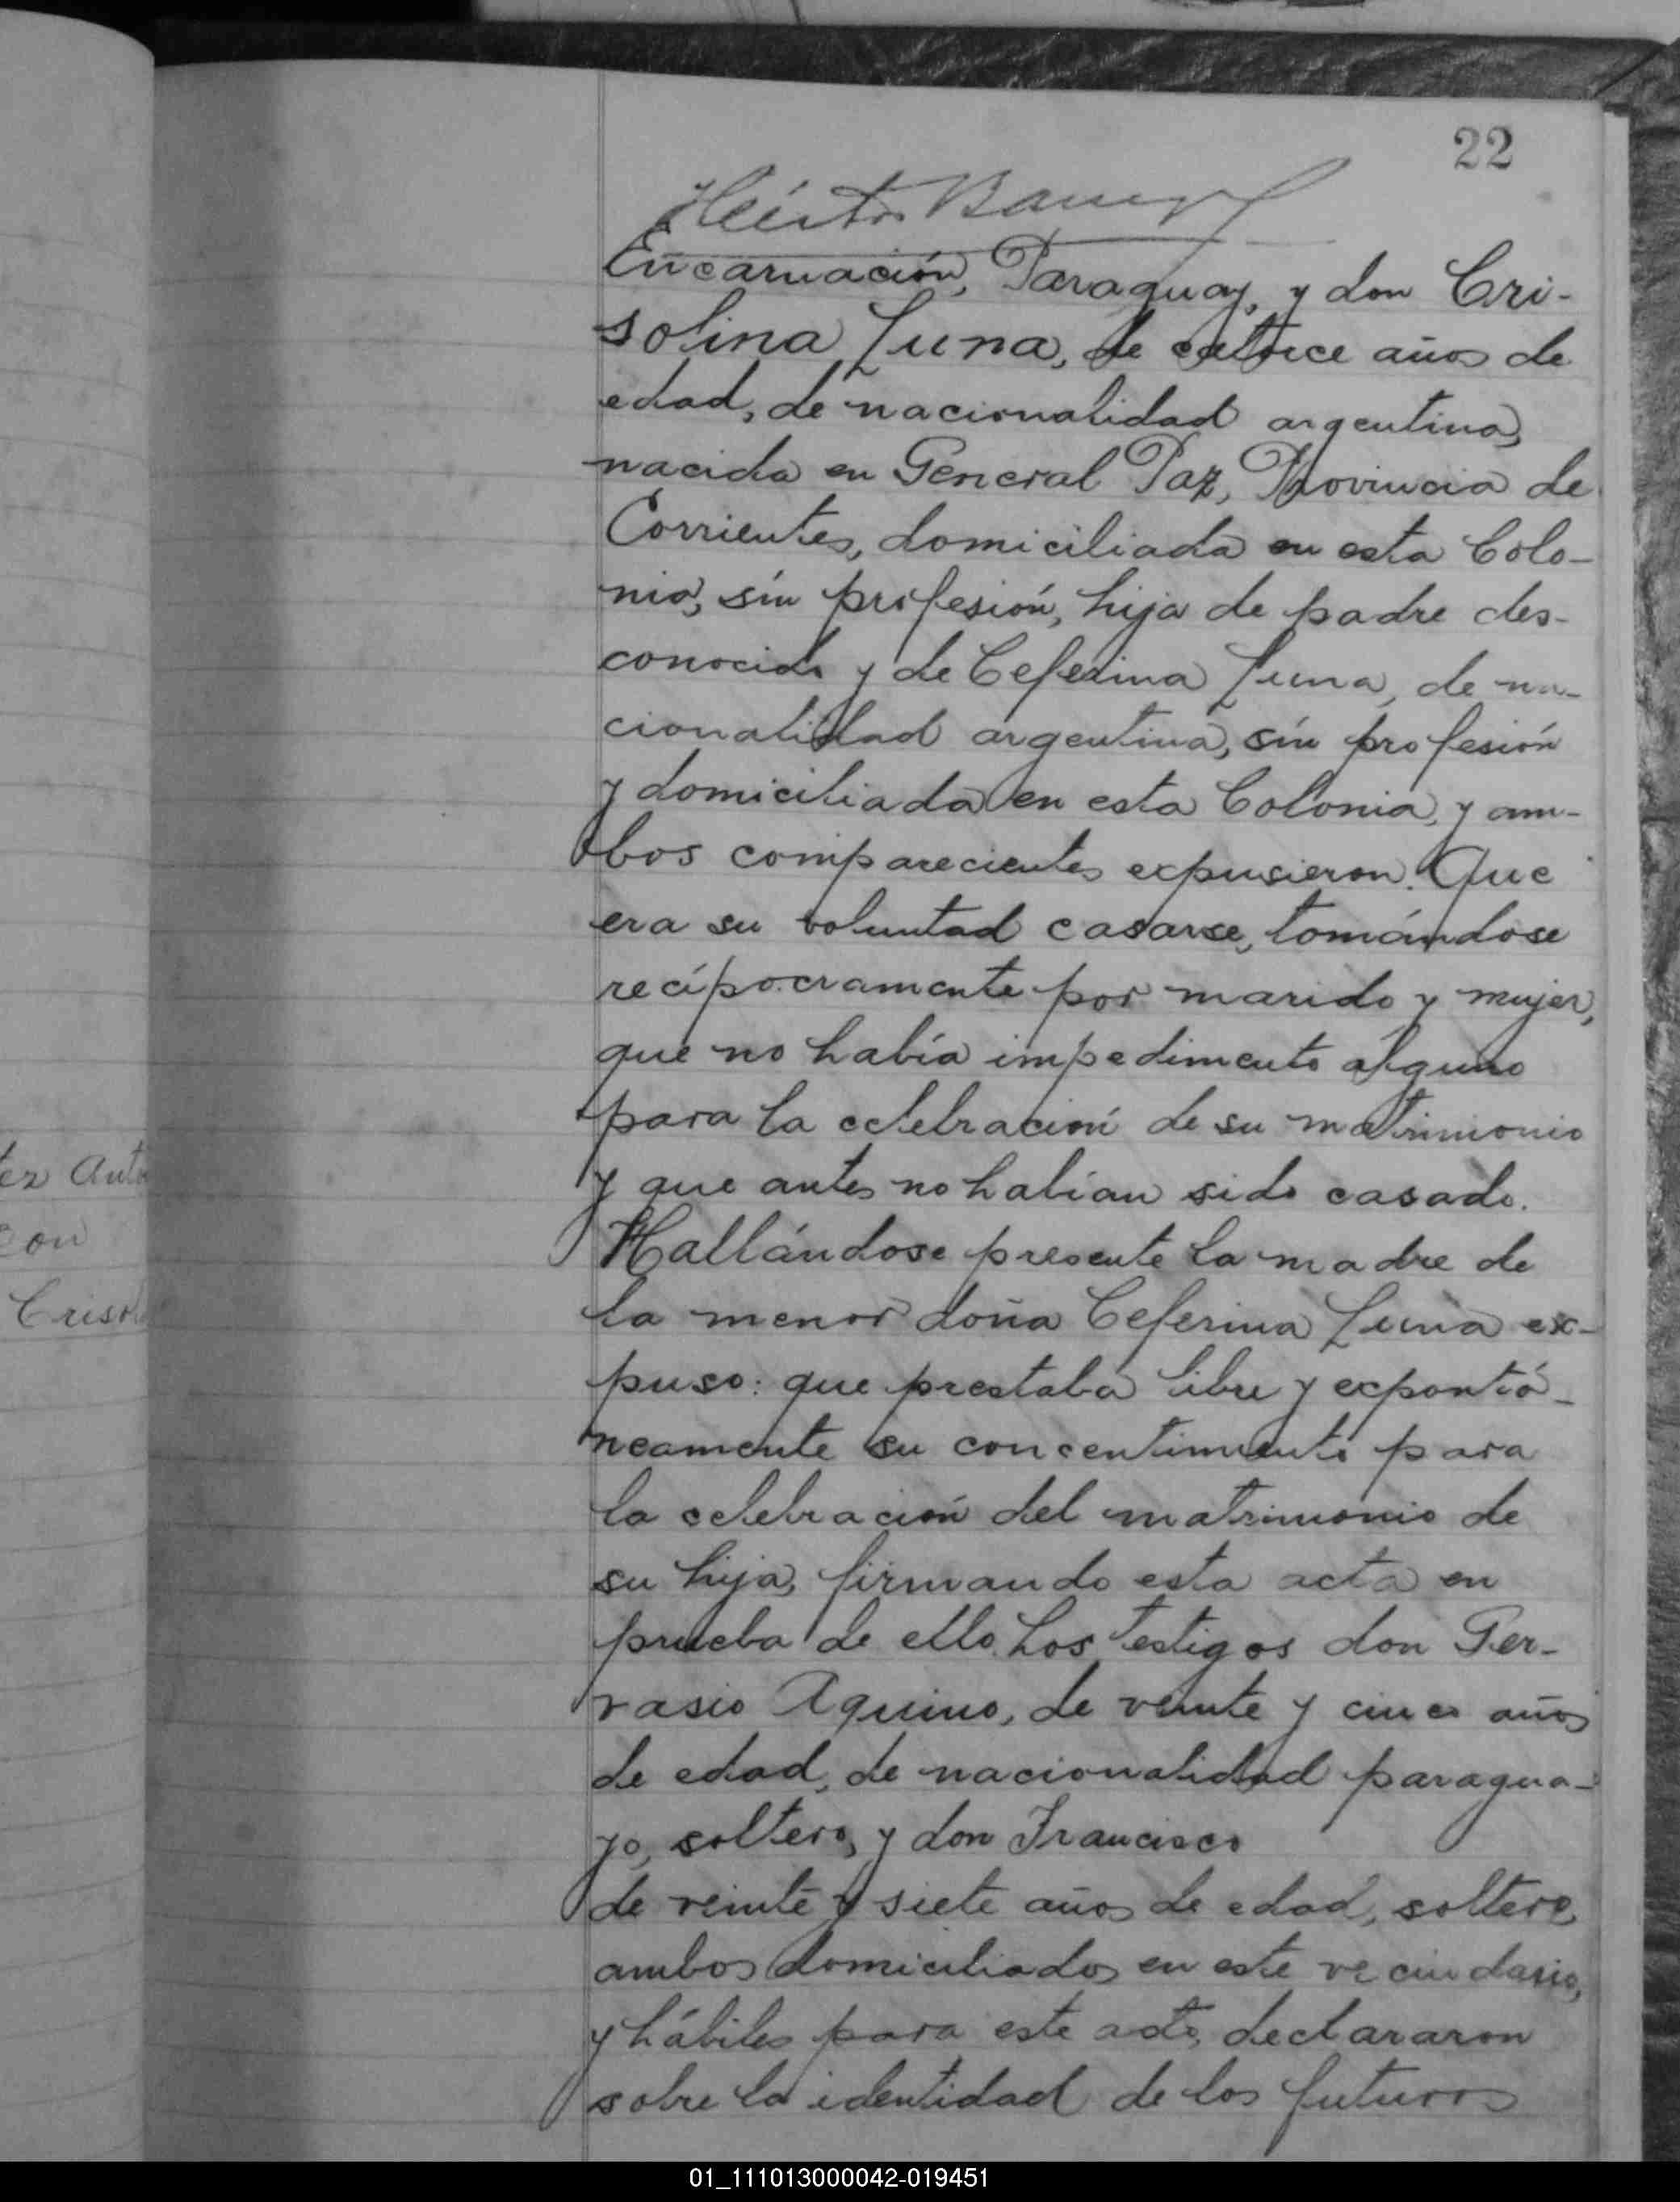 22
Encarnación, Paraguay, y don Cri-
solina Luna, de catorce años de
edad, de nacionalidad argentina,
nacida en General Paz, Provincia de
Corrientes, domiciliada en esta Colo-
nia, sin profesión, hija de padre des-
conocido y de Ceferina Luna, de na-
cionalidad argentina, sin profesión
y domiciliada en esta Colonia, y am-
bos comparecientes expusieron: Que
era su voluntad casarse, tomándose
recípocramente por marido y mujer,
que no había impedimento alguno
para la celebración de su matrimonio
y que antes no habían sido casado.
Hallándose presente la madre de
la menor doña Ceferina Luna ex-
puso: que prestaba libre y expontá-
neamente su concentimiento para
la celebración del matrimonio de
su hija, firmando esta acta en
prueba de ello. Los testigos don Ger-
vasio Aquino, de veinte y cinco años
de edad, de nacionalidad paragua-
yo, soltero, y don Francisco
de veinte y siete años de edad, soltero,
ambos domiciliados en este vecindario,
y hábiles para este acto, declararon
sobre la identidad de los futuros
ez Anto
con
Crisol
01_111013000042-019451